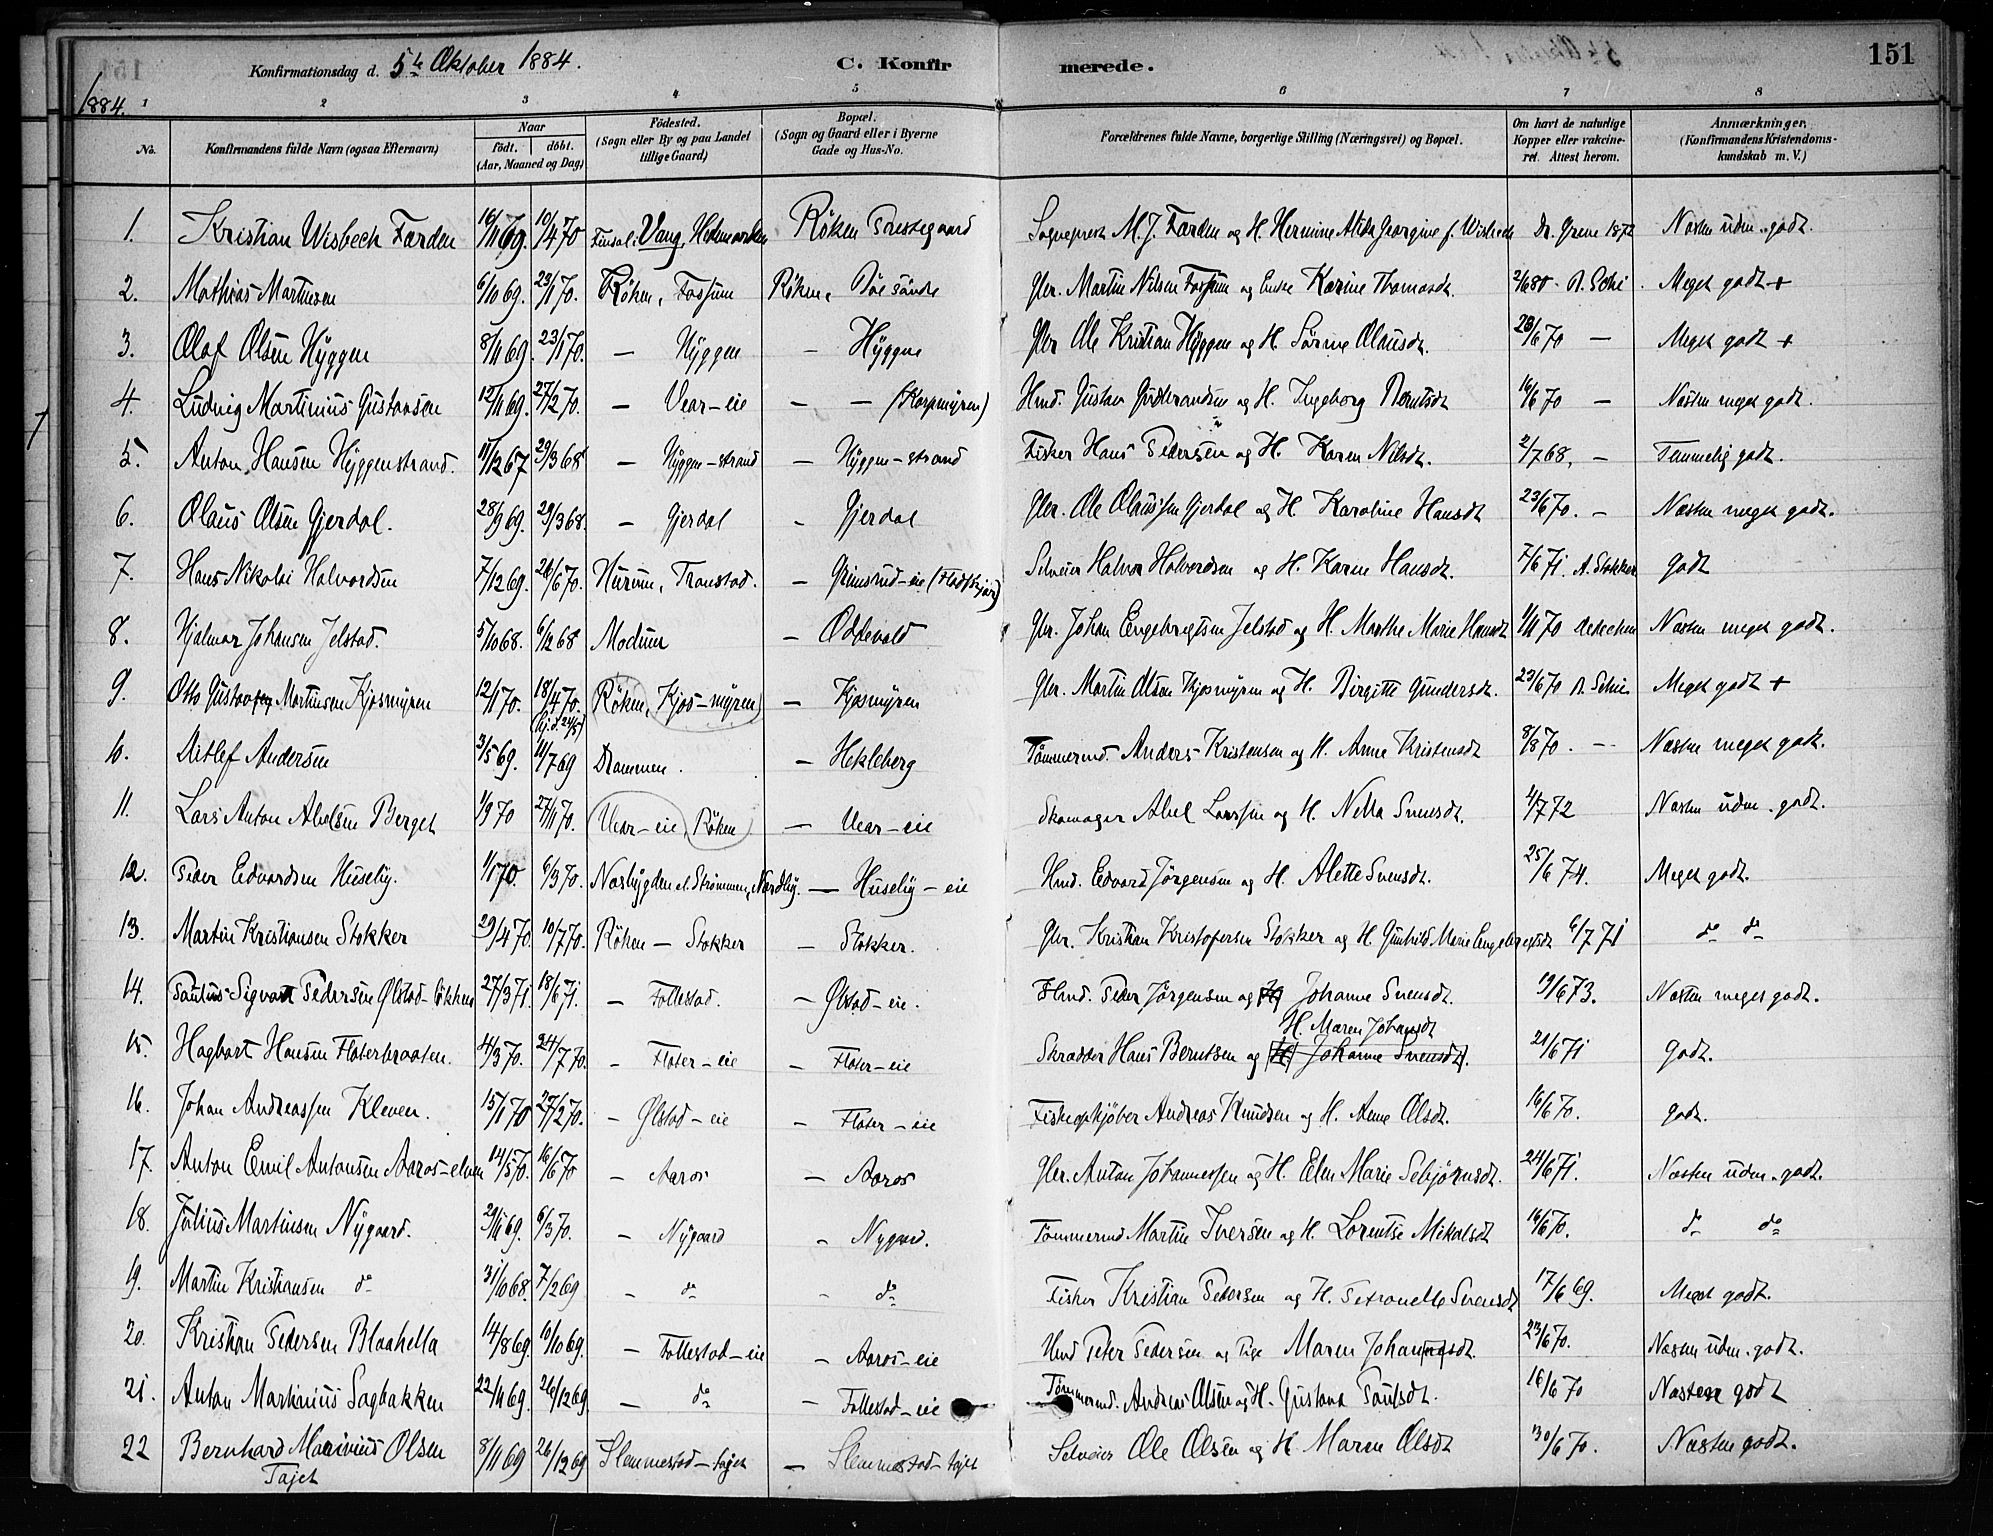 Konfirmationsdag d. 5te Oktober 1884. C. Konfirmerede. 151
1884. 1 2 3 4 5 6 7 8
No. Konfirmandens fulde Navn (ogsaa Efternavn) Naar födt. döbt. (Aar, Maaned og Dag) Födested. (Sogn eller By og paa Landet tillige Gaard) Bopæl. (Sogn og Gaard eller i Byerne Gade og Hus-No. Forældrenes fulde Navne, borgerlige Stilling (Næringsvei) og Bopæl. Om havt de naturlige Kopper eller vakcineret. Attest herom. Anmærkninger. (Konfirmandens Kristendomskundskab m. V.)
1. Kristian Wisbech Farden 16/11 69. 10/4 70 Vang, Hedemarken Röken Præstegaard Sogneprest M. J. Farden og H. Hermine Georgine f. Wisbech Dr. 1872 Næsten udm. godt.
2. Mathias Martinsen 6/10 69. 23/1 70. Röken, Fossum Röken, Gbr. Martin Nilsen Fossum og Enke Karine Thomasdt. 2/6 80 Meget godt +
3. Olaf Olsen Hyggen 8/11 69. 23/1 70. — Hyggen — Hyggen Gbr Ole Kristian Hyggen og H. Sörine Olausdt. 28/6 70 — Meget godt +
4. Ludvig Martinius Gustavsen 12/11 69. 27/2 70. — Vear-eie — — (Korpmyren) Hmd. Gustav Gudbrandsen og H. Ingeborg Berntsdt 16/6 70 — Næsten meget godt.
5. Anton Hansen Hyggenstrand. 11/12 67 29/3 68 — Hyggen-strand — Hyggen-strand Fisker Hans Pedersen og H. Karen Nilsdt. 2/7 68. — Temmelig godt.
6. Olaus Olsen Gjerdal. 28/9 69. 29/3 68. — Gjerdal — Gjerdal Gbr. Ole Olaussen Gjerdal og H. Karoline Hansdt 23/6 70. — Næsten meget godt.
7. Hans Nikolai Halvordsen 7/12 69. 26/6 70. Hurum, Tronstad. — Grimsrud-eie Selveier Halvor Halvordsen og H. Karen Hansdt. 7/6 71. A. Stokker godt
8. Hjalmar Johansen Jelstad. 5/10 68. 6/12 68 Modum — Oddevald Gbr. Johan Engebregtsen Jelstad og H. Marthe Marie Hansdt 1/11 70 Næsten meget godt.
9. Otto Gustav Martinsen Kjosmyren 12/1 70. 18/4 70. (Hj.d. 24/5) Röken, Kjos-myren — Kjosmyren Gbr. Martin Olsen Kjosmyren og H. Birgitte Gundersdt. 23/6 70 Meget godt +
10. Ditlef Andersen 3/5 69. 11/7 69 Drammen. — Hekleberg Tömmermd. Anders Kristensen og H. Anne Kristensdt 8/8 70. — Næsten meget godt.
11. Lars Anton Abelsen Berget 1/9 70 27/11 70. Vear-eie Röken — Vear-eie Skomager Abel Larssen og H. Nella Svensdt. 4/7 72 Næsten udm. godt.
12. Peder Edvardsen Huseby. 1/1 70. 6/3 70. Nordby. — Huseby-eie Hmd. Edvard Jörgensen og H. Alette Svensdt. 25/6 74. Meget godt.
13. Martin Kristiansen Stokker 29/4 70. 10/7 70. Röken — Stokker — Stokker. Gbr. Kristian Kristofersen Stokker og H. Gunhild Marie Engebregtsdt 6/7 71 do do
14. Paulus Sigvart Pedersen Ølstad-lökken 27/3 71. 18/6 71. — Follestad. — Ølstad-eie. Hmd. Peder Jörgensen og H Johanne Svensdt. 19/6 73. Næsten meget godt.
H. Maren Johansdt
15. Hagbart Hansen Flaterbraaten. 4/3 70. 24/7 70. — Flater-eie — Flater-eie Skrædder Hans Berntsen og [H] Johanne Svensdt. 21/6 71 Godt.
16. Johan Andreassen Kleven. 15/1 70 27/2 70. — Ølstad-eie — Flater-eie Fiskeopkjöber Andreas Knudsen og H. Anne Olsdt. 16/6 70. godt.
17. Anton Emil Antonsen Aaros-elven 14/5 70. 16/6 70 — Aaros — Aaros Gbr. Anton Johannessen og H. Elen Marie Sebjörnsdt. 24/6 71. Næsten udm. godt.
18. Julius Martinsen Nygaard. 29/11 69. 6/3 70. — Nygaard — Nygaard. Tömmermd Martin Iversen og H. Lorentse Mikalsdt 16/6 70. do do
19. Martin Kristiansen do 31/10 68. 7/2 69 — do — do Fisker Kristian Pedersen og H. Petronelle Svensdt 17/6 69. Meget godt.
20. Kristian Pedersen Blaahella 14/8 69. 10/10 69. — Follestad-eie — Aaros-eie Hmd Peter Pedersen og Pige Maren Johansdt 23/6 70. Næsten udm. godt.
21. Anton Martinius Sagbakken 22/11 69. 26/12 69. — do — Follestad-eie Tömmermd. Andreas Olsen og H. Gustava Paulsdt. 16/6 70 Næsten godt
22 Bernhard Marinius Olsen Tajet 8/11 69 26/12 69 Slemmestad-tajet — Slemmestad-tajet Selveier Ole Olsen og H Maren Olsdt 30/6 70. Næsten godt.